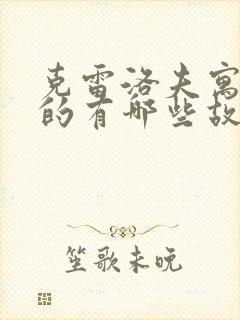 克雷洛夫寓
的有哪些故
笙歌未晚